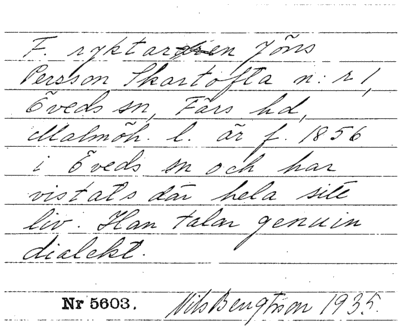 F. ryktaren Jöns
Persson Skartofta n:r 1,
Öveds sn, Färs hd,
Malmöh. l. är f. 1856
i Öveds sn och har
vistats där hela sitt
liv. Han talar genuin
dialekt.
Nr 5603. Nils Bengtsson 1935.